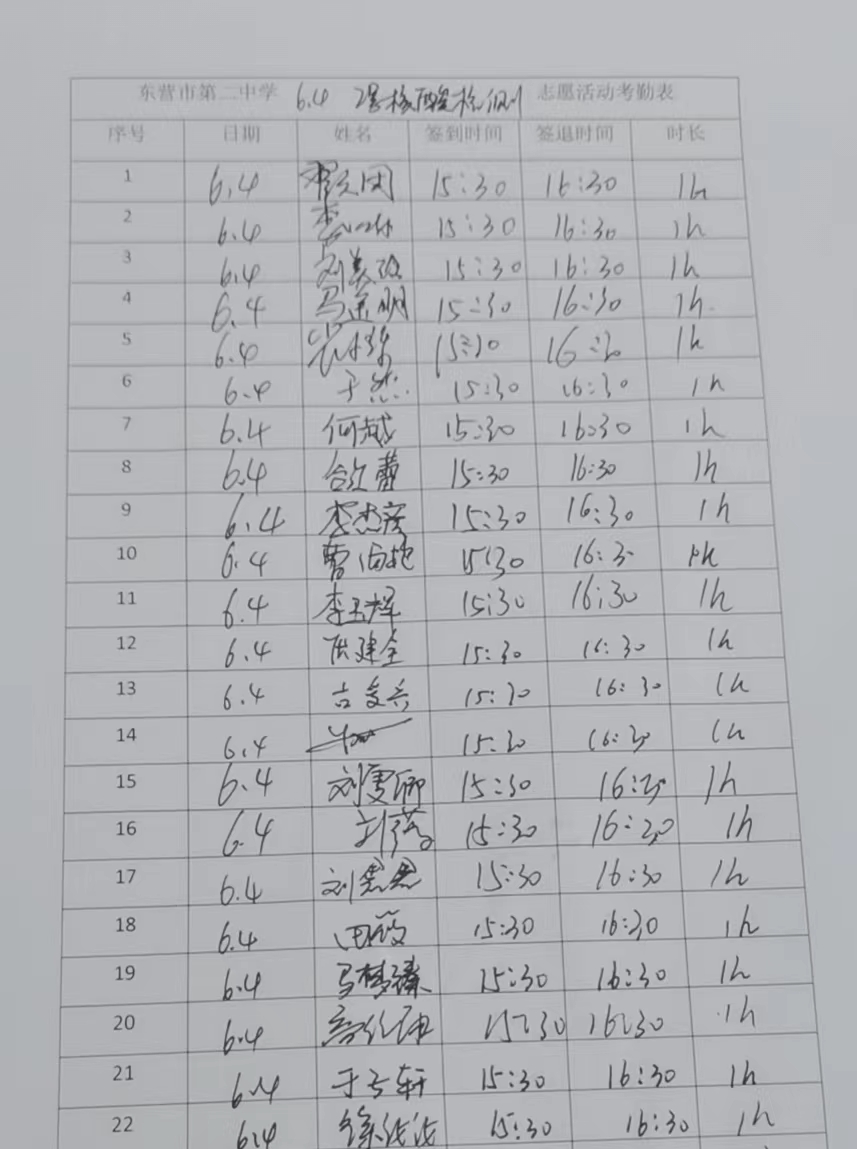 东营市第二中学 6.4 核酸检测 志愿活动考勤表
序号 日期 姓名 签到时间 签退时间 时长
1 6.4 15:30 16:30 1h
2 6.4 15:30 16:30 1h
3 6.4 刘美 15:30 16:30 1h
4 6.4 马 明 15:30 16:30 1h
5 6.4 15:30 16:30 1h
6 6.4 于然 15:30 16:30 1h
7 6.4 何越 15:30 16:30 1h
8 6.4 蕾 15:30 16:30 1h
9 6.4 李杰彦 15:30 16:30 1h
10 6.4 曹 15:30 16:30 1h
11 6.4 李玉辉 15:30 16:30 1h
12 6.4 陈建全 15:30 16:30 1h
13 6.4 吉 15:30 16:30 1h
14 6.4 15:30 16:30 1h
15 6.4 刘雯卿 15:30 16:30 1h
16 6.4 刘 15:30 16:30 1h
17 6.4 刘思思 15:30 16:30 1h
18 6.4 田 15:30 16:30 1h
19 6.4 马梦臻 15:30 16:30 1h
20 6.4 15:30 16:30 1h
21 6.4 于 轩 15:30 16:30 1h
22 6.4 15:30 16:30 1h